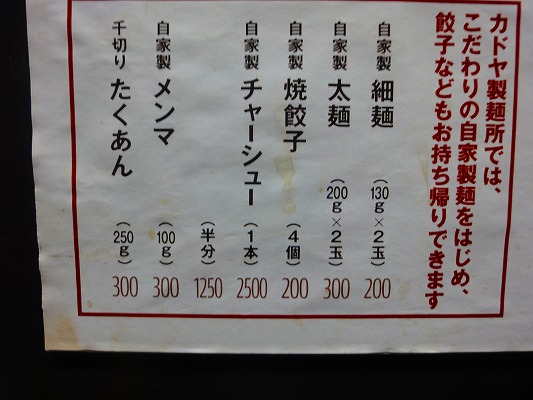 カドヤ製麺所では、
こだわりの自家製麺をはじめ、
餃子などもお持ち帰りできます
自家製 細麺 (130g×2玉) 200
自家製 太麺 (200g×2玉) 300
自家製 焼餃子 (4個) 200
自家製 チャーシュー (1本) 2500
(半分) 1250
自家製 メンマ (100g) 300
千切り たくあん (250g) 300